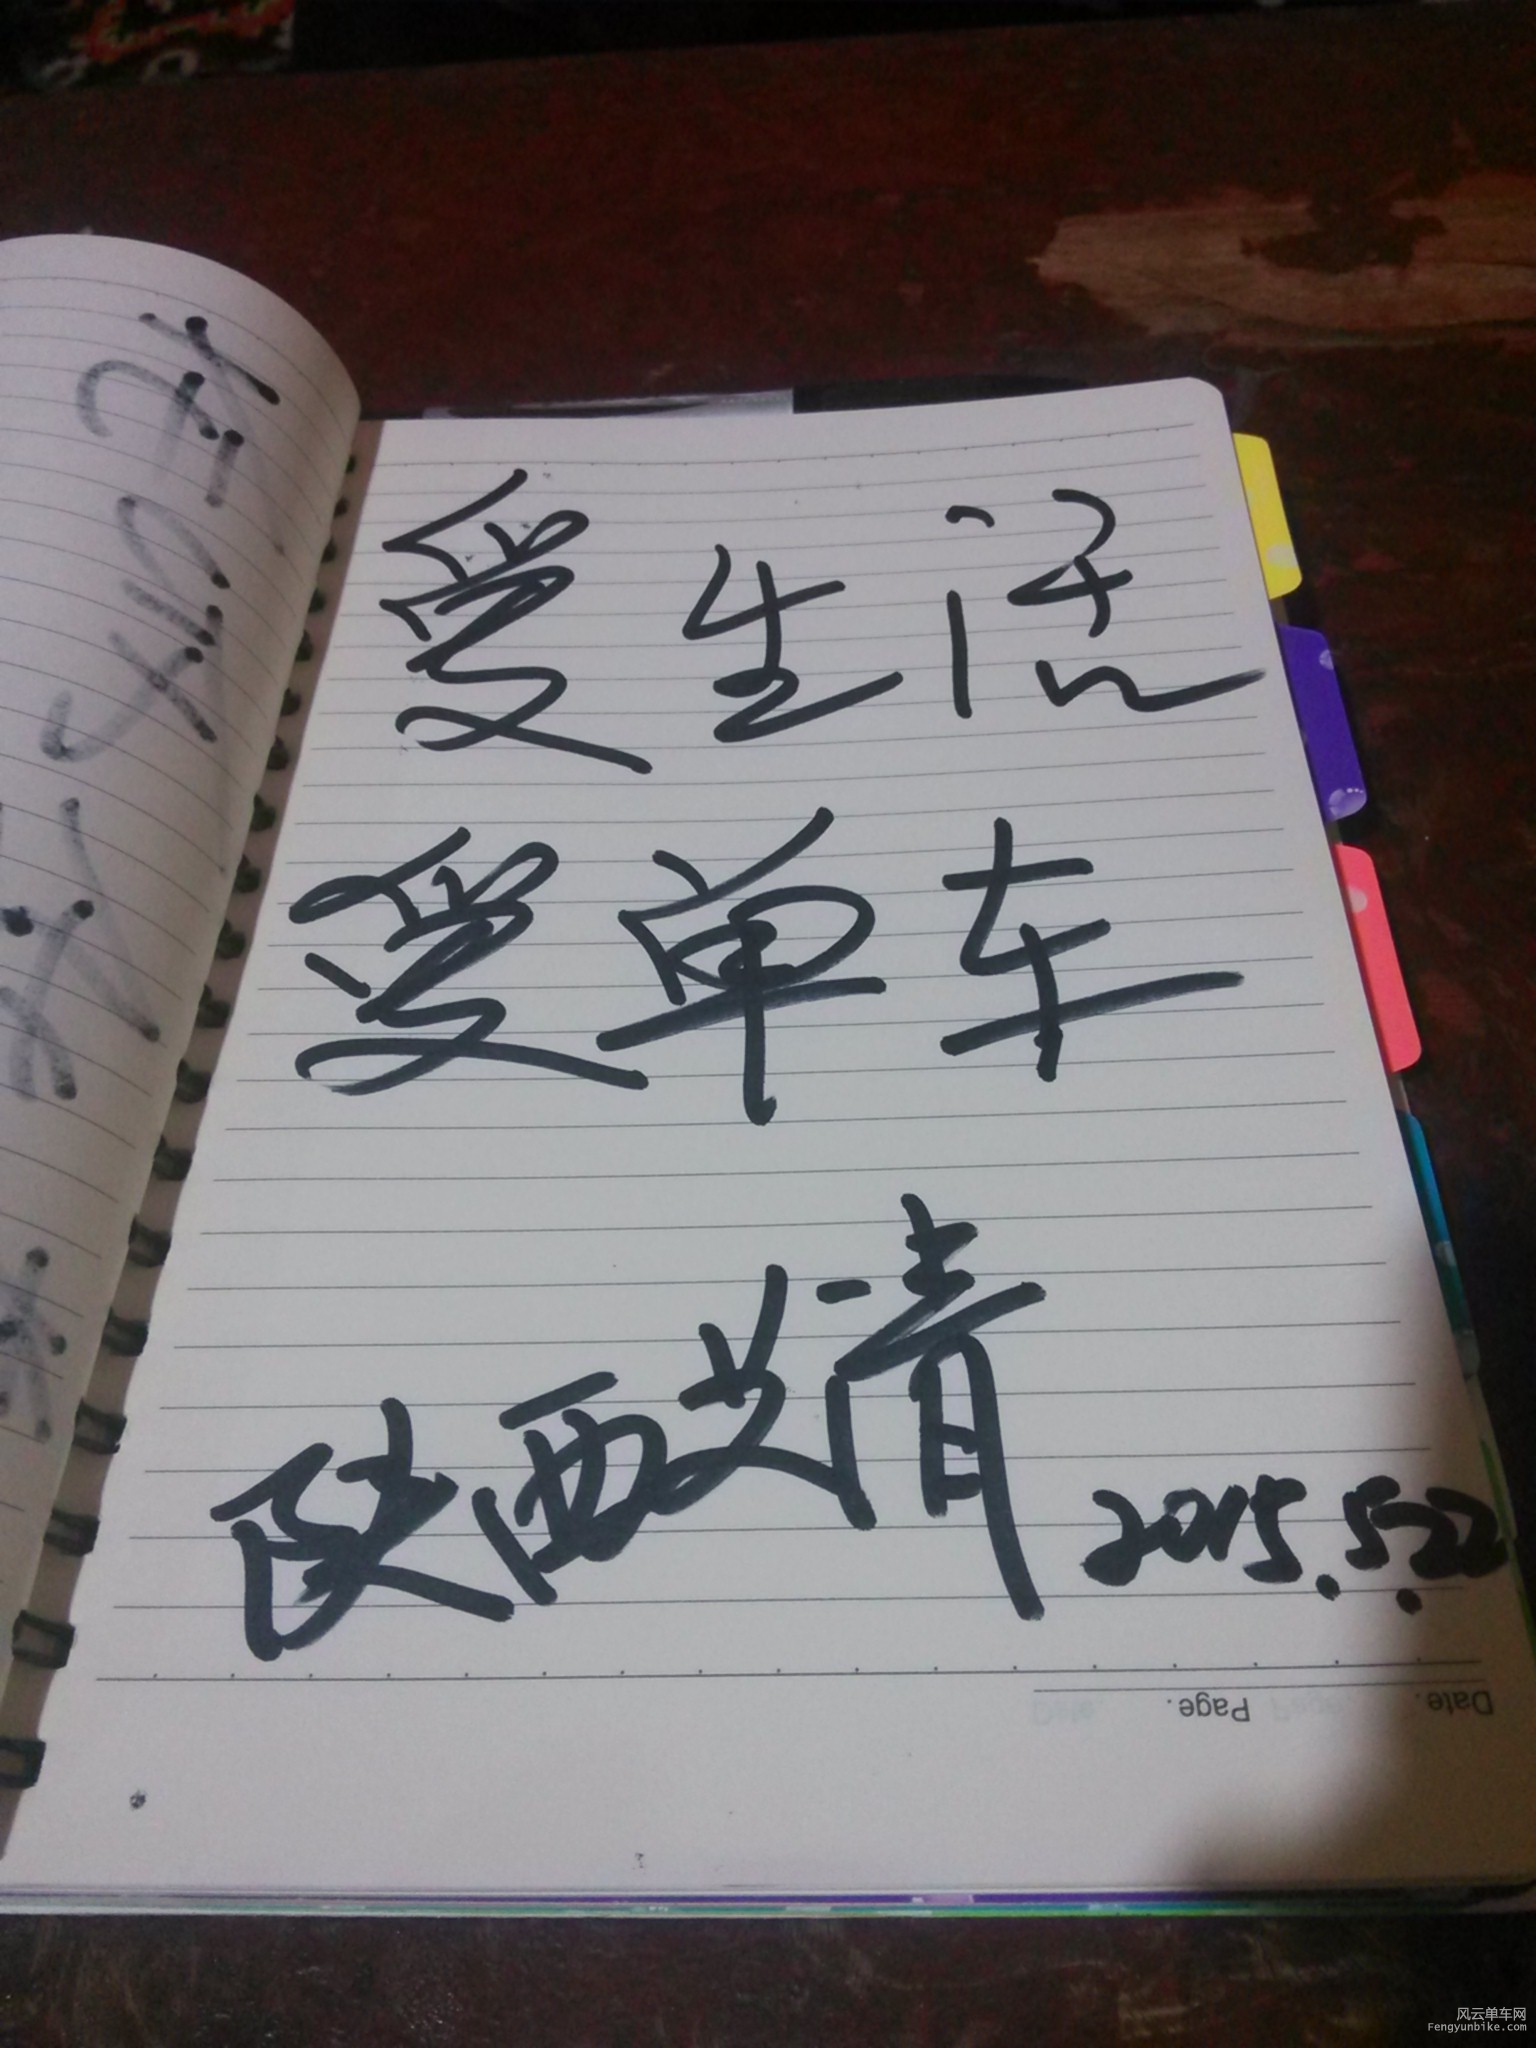 爱生活
爱单车
陕西艾清 2015.5.22
Date. Page.
风云单车网
Fengyunbike.com